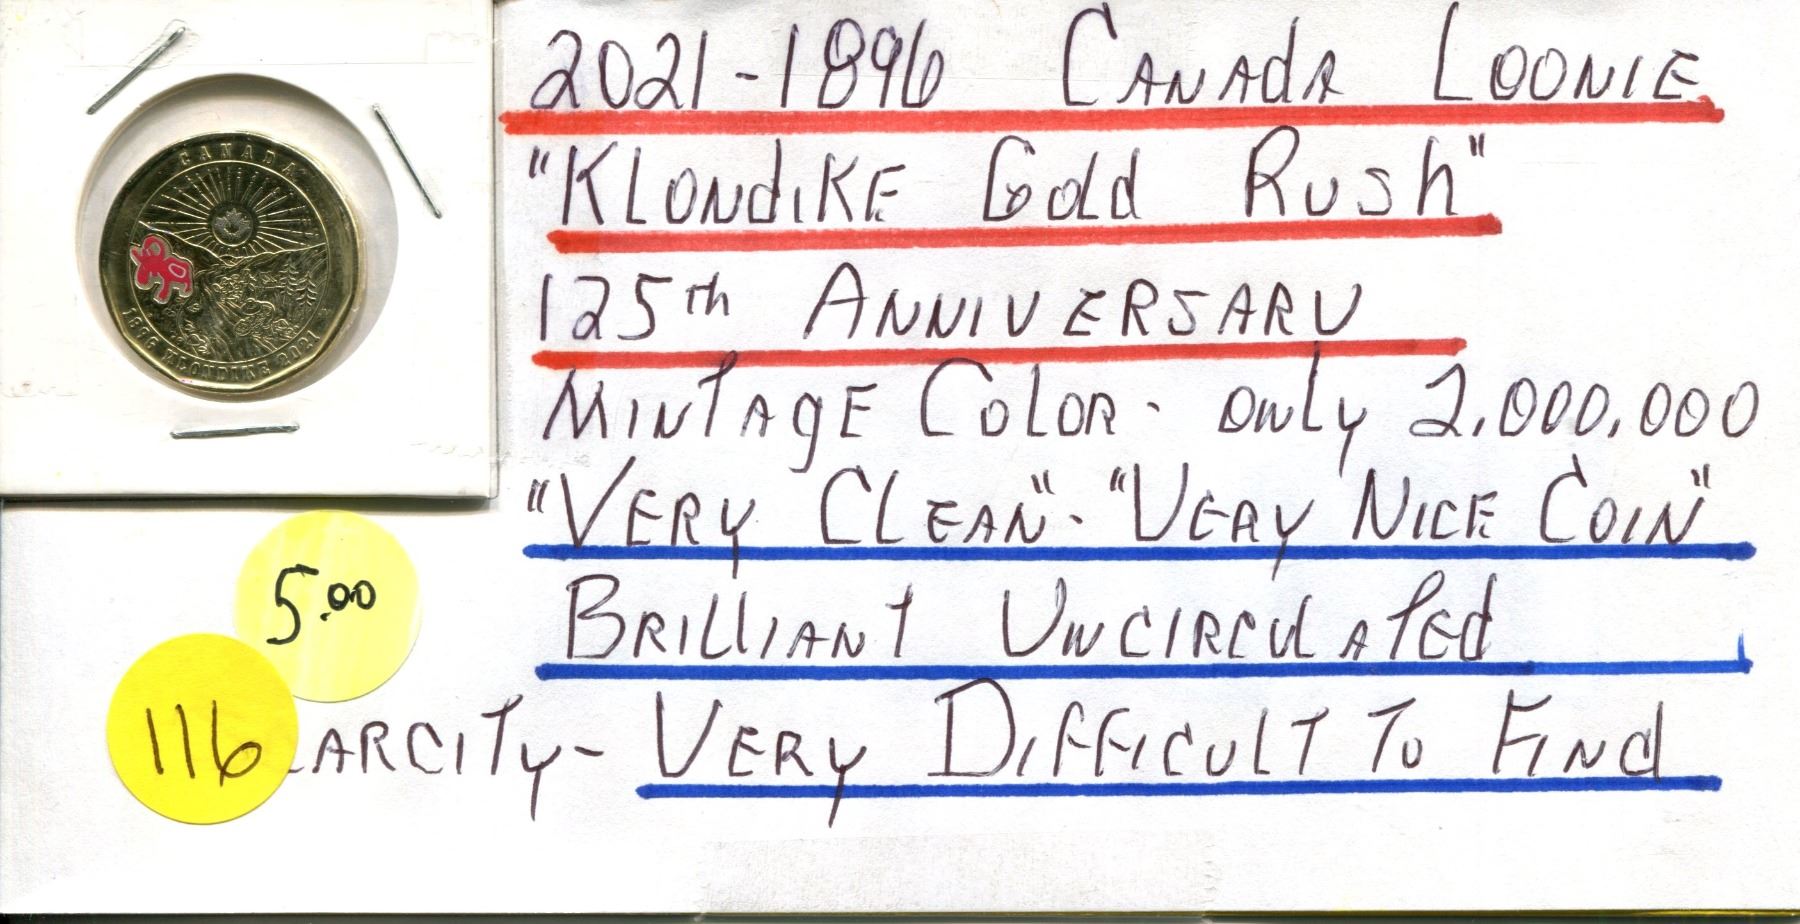 CANADA
1896 KLONDIKE 2021
2021-1896 CANAdA LOONIE
"KLONdIKE Gold Rush"
125th ANNIVERSARY
MINTAgE COLOR - ONLy 2,000,000
"VERy CLEAN" - "VERy NICE COIN"
BRILLIANT UNCIRCULATEd
5.00
116
CARCITy - VERy DIFFICULT TO FINd